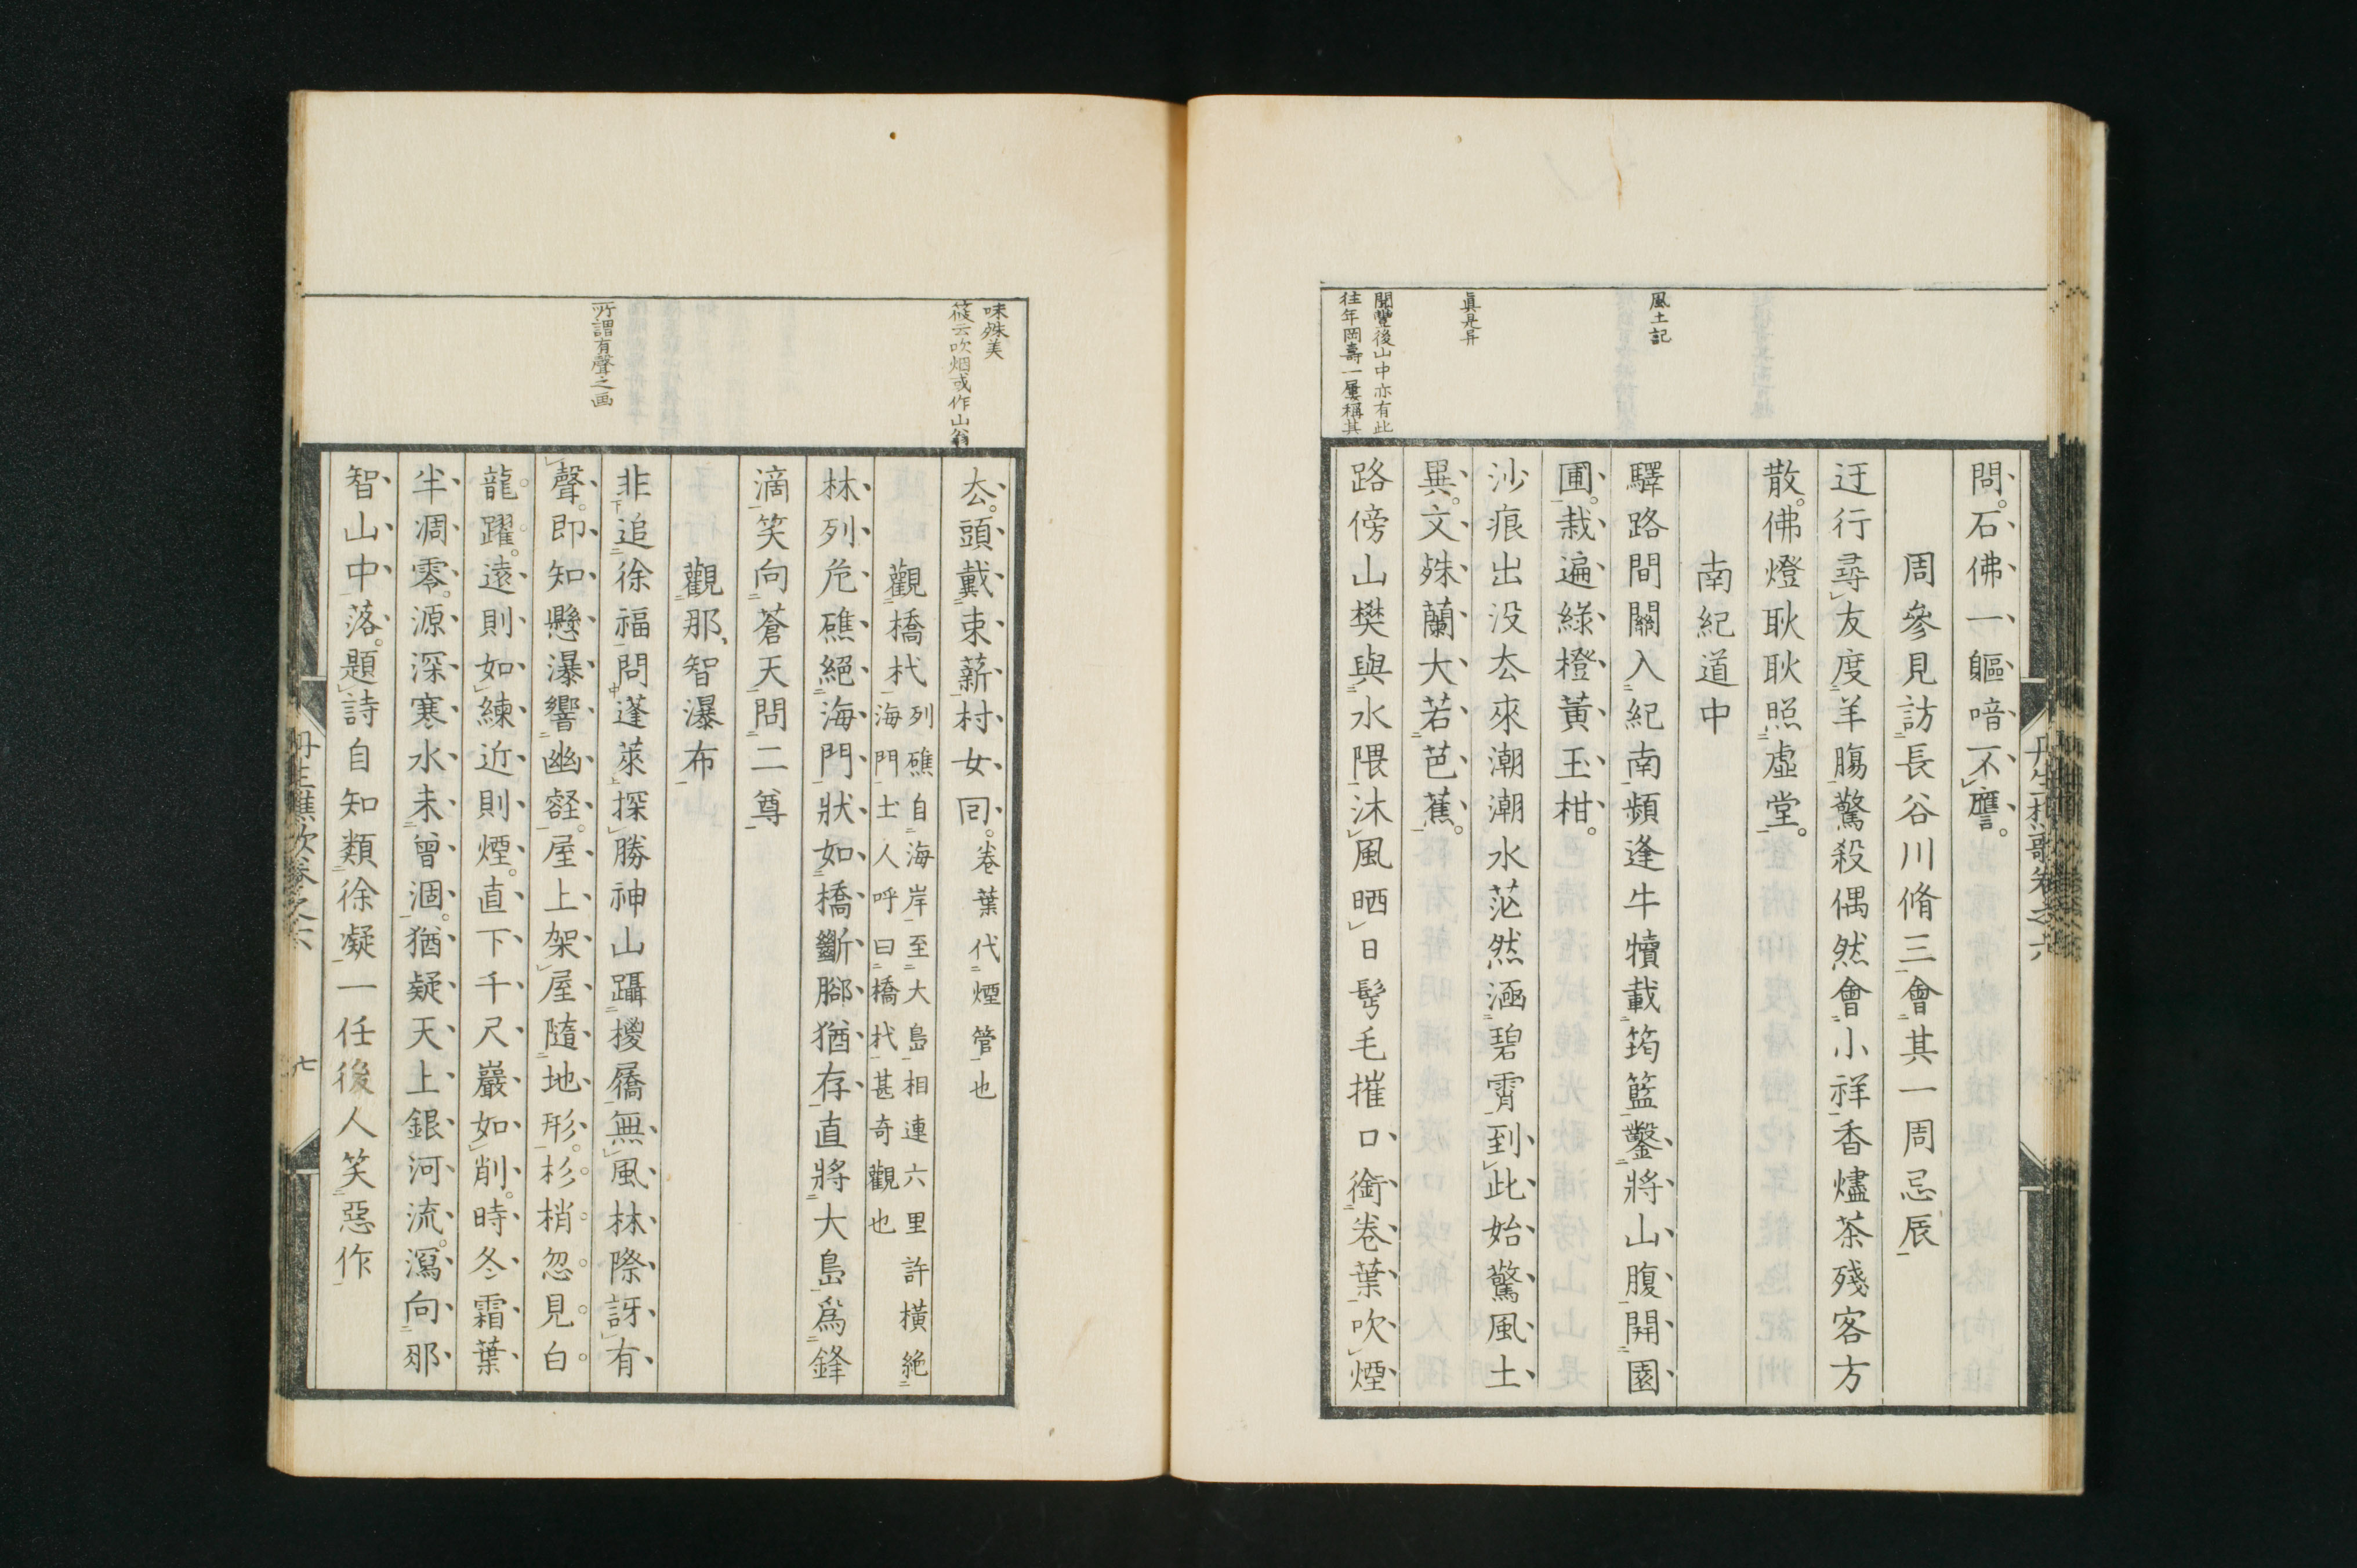 風土記
眞是丹
聞豐後山中亦有此
往年岡壽一屢稱其
問。石佛一軀喑不譍。
周參見訪長谷川脩三會其一周忌辰
迂行尋友度羊腸驚殺偶然會小祥香燼茶殘客方
散。佛燈耿耿照虛堂。
南紀道中
驛路間關入紀南頻逢牛犢載筠籃鑿將山腹開園
圃。栽遍綠橙黃玉柑。
沙痕出没厺來潮潮水茫然涵碧霄到此始驚風土
異。文殊蘭大若芭蕉。
路傍山樊與水隈沐風晒日髩毛摧口銜卷葉吹煙
丹生樵歌卷之六
味殊美
筱云吹烟或作山翁
所謂有聲之画
厺。頭戴束薪村女囘。卷葉代煙管也
觀橋杙列礁自海岸至大島相連六里許橫絶
海門土人呼曰橋杙甚奇觀也
林列危礁絕海門狀如橋斷腳猶存直將大島爲鋒
滴笑向蒼天問二尊
觀那智瀑布
非追徐福問蓬萊探勝神山躡㰅屩無風林際訝有
聲。即知懸瀑響幽壑。屋上架屋隨地形。杉梢忽見白
龍躍。遠則如練近則煙。直下千尺巖如削。時冬霜葉
半凋零。源深寒水未曾涸。猶疑天上銀河流。瀉向那
智山中落。題詩自知類徐凝一任後人笑惡作
丹生樵歌卷之六
七